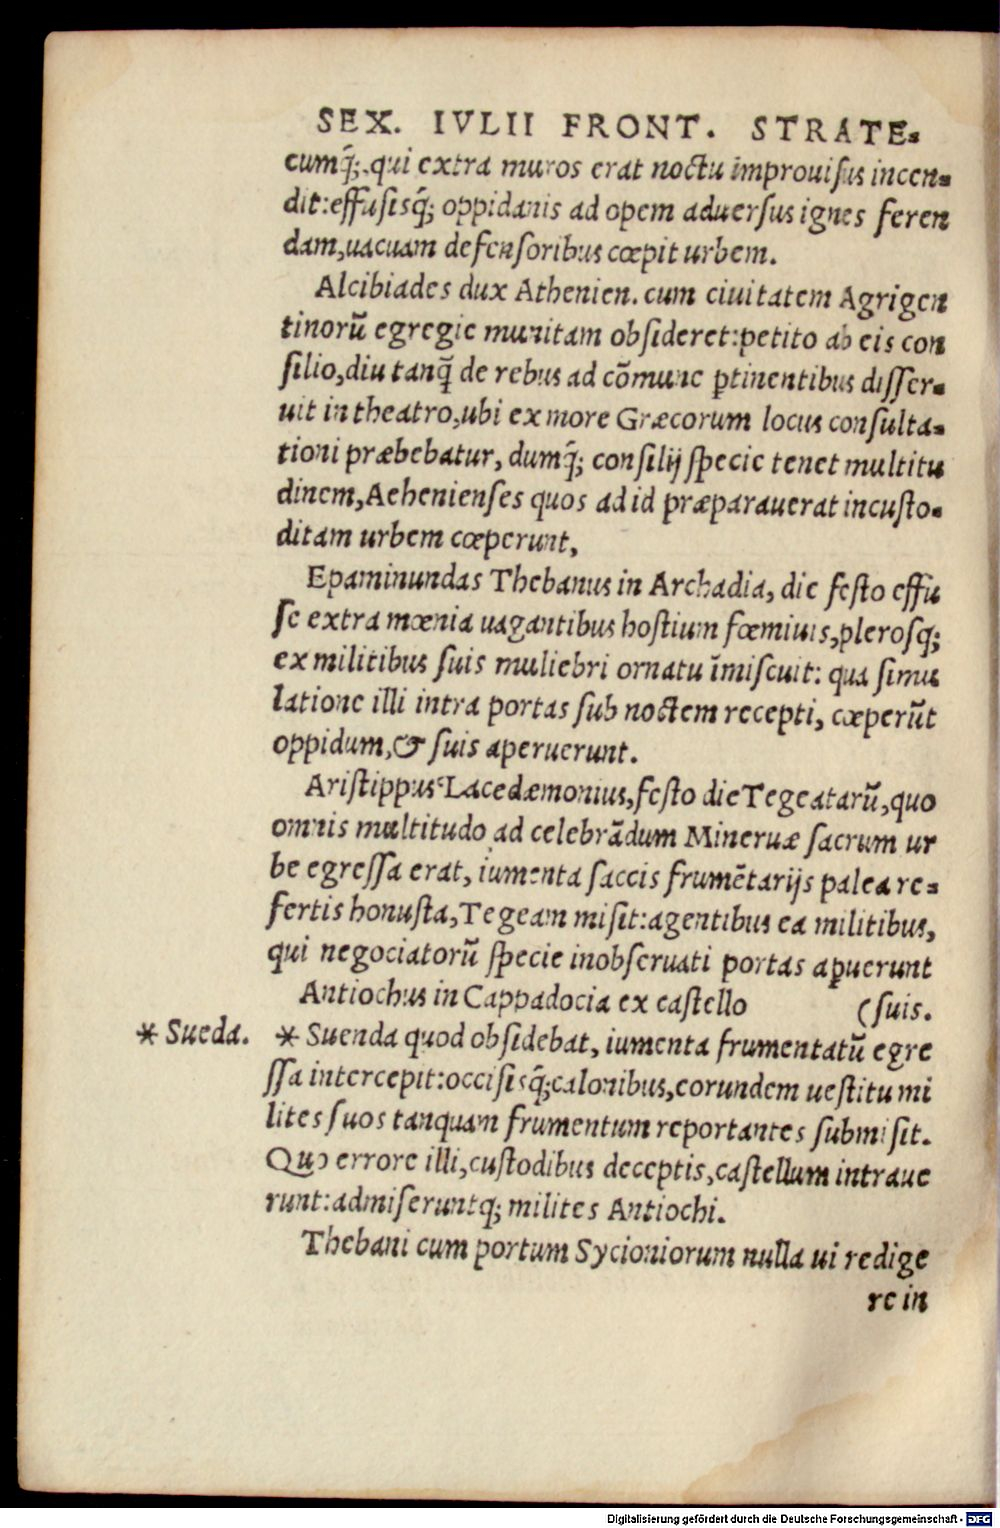 SEX. IVLII FRONT. STRATE-
cumq́;, qui extra muros erat noctu improuisus incen-
dit: effusisq́; oppidanis ad opem aduersus ignes feren
dam, uacuam defensoribus cœpit urbem.
Alcibiades dux Athenien. cum ciuitatem Agrigen
tinorũ egregie munitam obsideret: petito ab eis con
silio, diu tanq̃ de rebus ad cõmune ꝑtinentibus disser-
uit in theatro, ubi ex more Græcorum locus consulta-
tioni præbebatur, dumq́; consilij specie tenet multitu
dinem, Aehenienses quos ad id præparauerat incusto-
ditam urbem cœperunt,
Epaminundas Thebanus in Archadia, die festo effu
se extra mœnia uagantibus hostium fœmiuis, plerosq;
ex militibus suis muliebri ornatu ĩmiscuit: qua simu
latione illi intra portas sub noctem recepti, cœperũt
oppidum, & suis aperuerunt.
Aristippus Lacedæmonius, festo die Tegeatarũ, quo
omnis multitudo ad celebrãdum Mineruæ sacrum ur
be egressa erat, iumenta saccis frumẽtarijs palea re-
fertis honusta, Tegeam misit: agentibus ea militibus,
qui negociatorũ specie inobseruati portas aꝑuerunt
Antiochus in Cappadocia ex castello (suis.
* Sueda. * Suenda quod obsidebat, iumenta frumentatũ egre
ssa intercepit: occisisq́; calonibus, eorundem uestitu mi
lites suos tanquam frumentum reportantes submisit.
Quo errore illi, custodibus deceptis, castellum intraue
runt: admiseruntq; milites Antiochi.
Thebani cum portum Sycioniorum nulla ui redige
re in
Digitalisierung gefördert durch die Deutsche Forschungsgemeinschaft - DFG